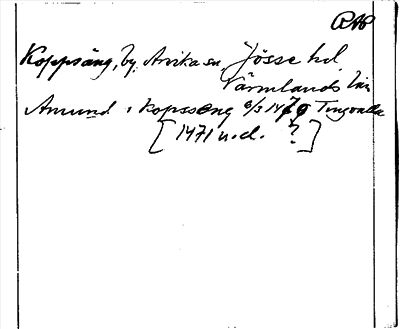 RAP
Koppsäng, by, Arvika sn, Jösse hd,
Värmlands län
Amund i Kopsseng 6/3 1470 Tingvalla
[1471 u.d. ?]